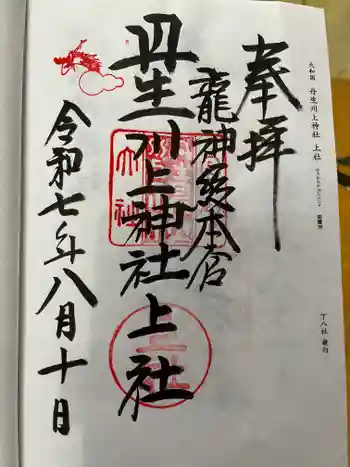 大和国 丹生川上神社 上社
奉拝
龍神総本宮
丹生川上神社上社
令和七年八月十日